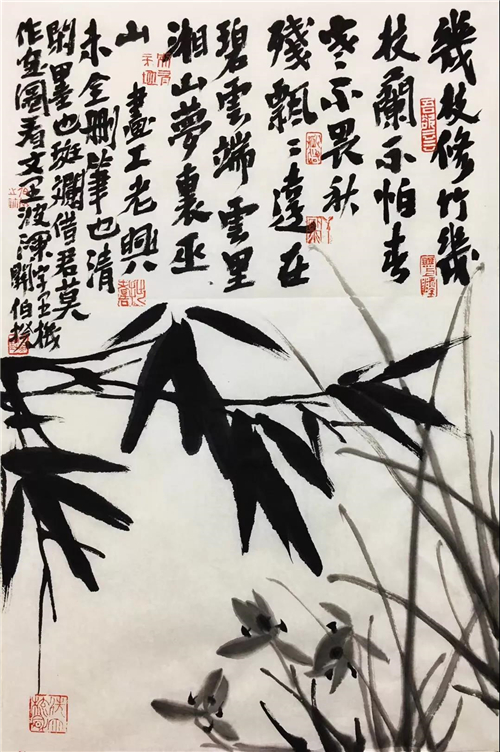 幾枝修竹幾
枝蘭不怕春
寒不畏秋
殘飄々遠在
碧雲端雲里
湘山夢裏巫
山畫工老興
未全刪筆也清
閑墨也斑斕借君莫
作畫圖看文里波瀾字里機
關伯